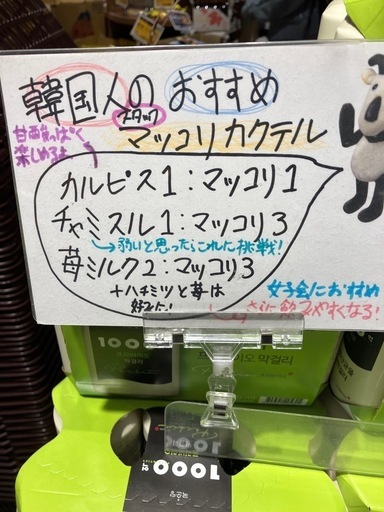 韓国人のおすすめ
スタッフ
甘酸っぱく
楽しめるよ
マッコリカクテル
カルピス1:マッコリ1
チャミスル1:マッコリ3
→弱いと思ったらこれに挑戦!
苺ミルク2:マッコリ3
+ハチミツと苺は
好みに!
女子会におすすめ
さらに飲みやすくなる!
1000
막걸리
막걸리
1000